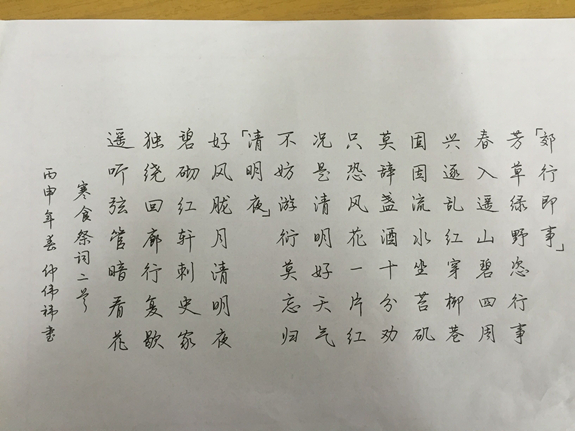 「郊行即事」
芳草绿野恣行事
春入遥山碧四周
兴逐乱红穿柳巷
固固流水坐苔矶
莫辞盏酒十分劝
只恐风花一片红
况是清明好天气
不妨游衍莫忘归
「清明夜」
好风胧月清明夜
碧砌红轩刺史家
独绕回廊行复歇
遥听弦管暗看花
寒食祭词二首
丙申年春 仲伟祎书